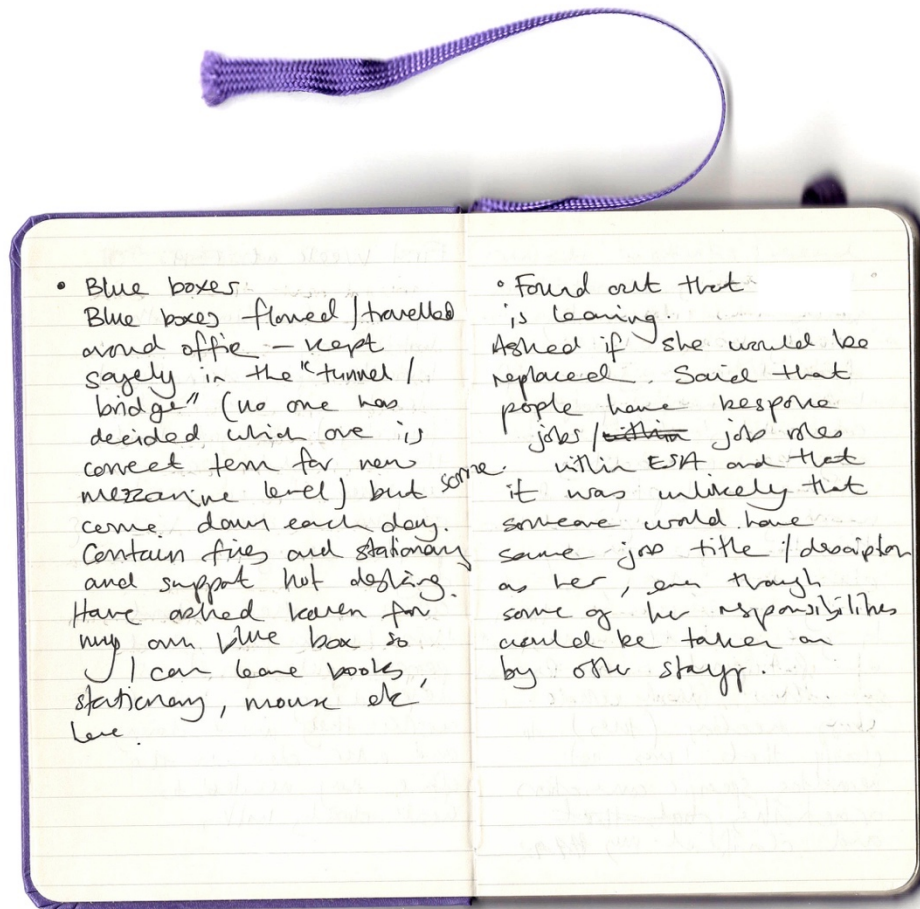 • Blue boxes
Blue boxes flowed / travelled
around office – kept
safely in the "tunnel /
bridge" (no one has
decided which one is
correct term for new
mezzanine level) but some
come down each day.
Contain files and stationary
and support hot desking.
Have asked Karen for
my own blue box so
I can leave books,
stationary, mouse etc
here.
• Found out that
is leaving
Asked if she would be
replaced. Said that
people have bespoke
jobs / within job roles
within ESA and that
it was unlikely that
someone would have
same job title / description
as her, even though
some of her responsibilities
would be taken on
by other staff.